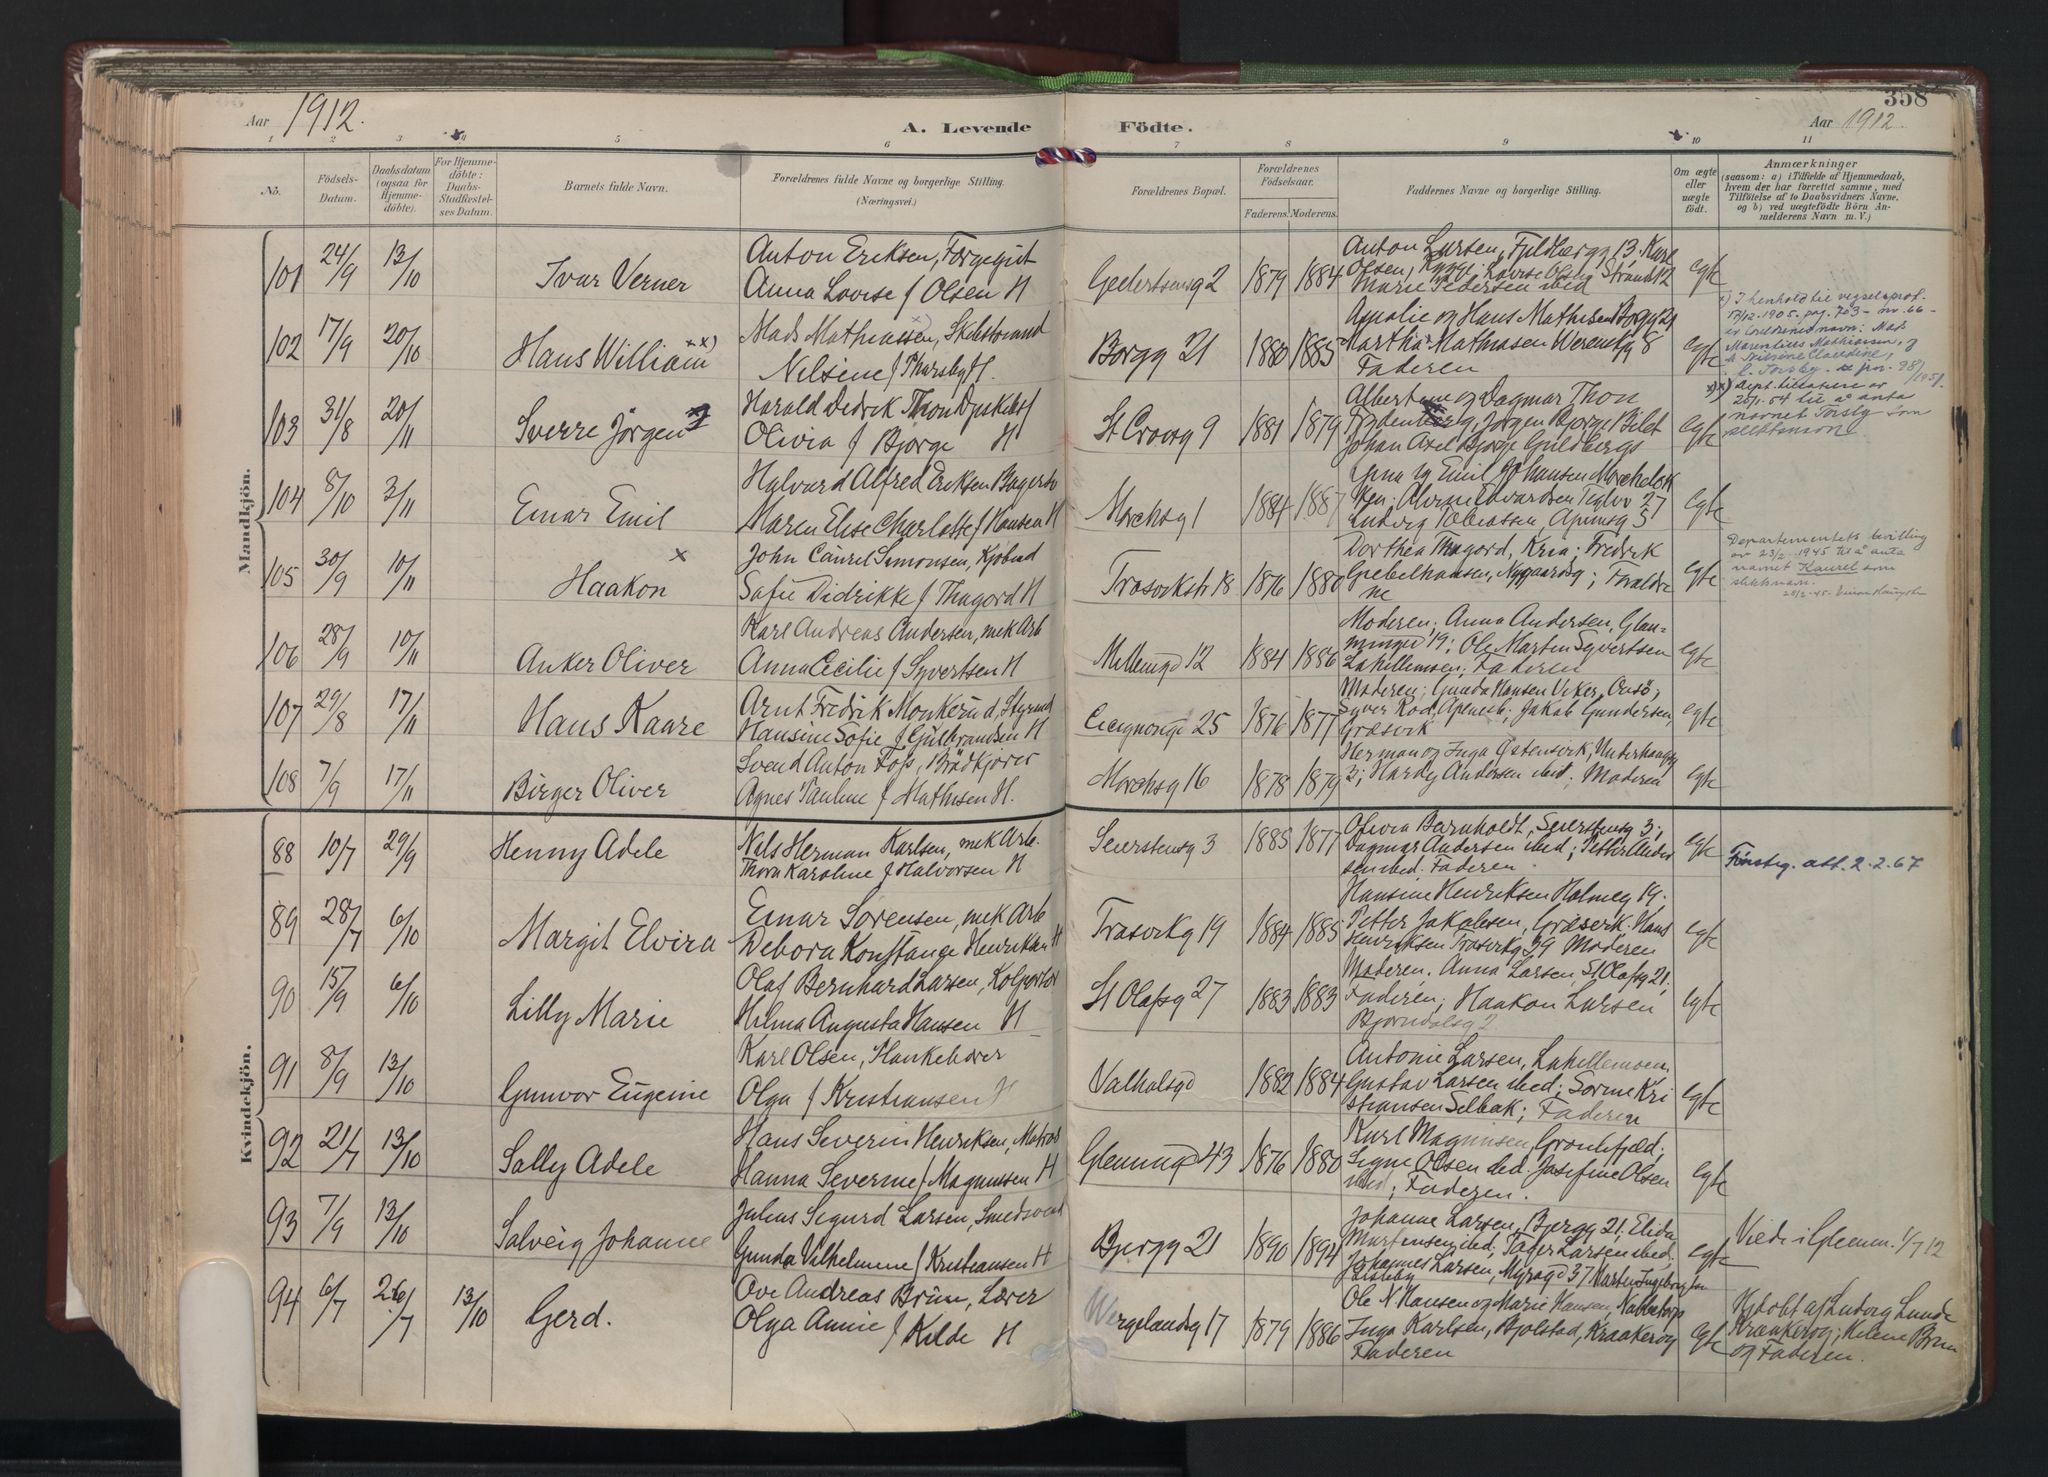 358
Aar 1912.
A. Levende Födte.
Aar 1912.
1 2 3 4 5 6 7 8 9 10 11
No.
Födsels-Datum.
Daabsdatum (ogsaa for Hjemme-döbte).
For Hjemme-döbte: Daabs-Stadfæstelses Datum.
Barnets fulde Navn.
Forældrenes fulde Navne og borgerlige Stilling. (Næringsvei.)
Forældrenes Bopæl.
Forældrenes Födselsaar.
Faderens. Moderens.
Faddernes Navne og borgerlige Stilling.
Om ægte eller uægte födt.
Anmærkninger
(saasom: a) i Tilfælde af Hjemmedaab,
hvem der har forrettet samme, med
Tilföielse af to Daabsvidners Navne,
og b) ved uægtefödte Börn An-
melderens Navn m. V.)
Mandkjön.
101 24/9 13/10 Ivar Verner
Anton Eriksen, Farvegut
Anna Lovise f Olsen H
Geelertsensg 2 1879 1884
Anton Larsen, Fjeldbergg 13. Karl
Olsen, Lovise Olsen Strandg 2
Marie Pedersen ibid
egte
102 17/9 20/10 Hans William xx)
Mads Mathiassen, x)
Nilsine f Thorsby H.
Borgg 21 1880 1885
Amalie og Hans Mathisen Borgg 21
Marthin Mathiasen 8
Faderen
egte
x) I henhold til vigselsprot.
17/12.1905. pag. 703 - nr. 66 -
er foreldrenes navn: Mads
Marentius Mathiassen, og
Nilsine Claudine,
f. Torsby. 98/1951
xx) Dept. tillatelse av
20/1.54 til å anta
navnet Torsby som
slektsnavn
103 31/8 20/11 Sverre Jörgen
Harald Didrik Thon
Olivia f Bjørge H
St Croixg 9 1881 1879
Albertine og Dagmar Thon
Jørgen Bjørge
Johan Axel Bjørge Guldbergs
egte
104 8/10 3/11 Einar Emil
Halvard Alfred Eriksen
Maren Elise Charlotte f Hansen H
Mørchsg 1 1884 1887
Anna og Emil Johansen
Edvardsen Teglv 27
Ludvig Tobiassen, Apenesg 5
egte
105 30/9 10/11 Haakon x
John Caurel Simonsen, Kjøbmd
Sofie Didrikke f Thagord H
Trosvikstr 18 1876 1880
Dorthea Thagord, Kria; Fredrik
Giebelhausen, Nygaardsg; Foreldre
ne
egte
Departementets bevilling
av 23/2-1945 til å anta
navnet Kaurel som
slektsnavn.
106 28/9 10/11 Anker Oliver
Karl Andreas Andersen, mek Arb
Anna Cecilie f Syvertsen H
12 1884 1886
Moderen; Anna Andersen, Glem-
mingegd 19; Ole Martin Syvertsen
Lahellemoen; Faderen
egte
107 29/8 17/11 Hans Kaare
Arnt Fredrik Monkerud, Styrmd
Hansine Sofie f Gulbrandsen H
25 1876 1877
Moderen; Gunda Hansen Viker, Onsö;
Syver Rod, Apenesb; Jakob Gundersen,
Græsvik
egte
108 7/9 17/11 Birger Oliver
Svend Anton Foss, Brödkjører
Agnes Pauline f Mathisen H.
Mørchsg 16 1878 1879
Herman og Inga Østensvik,
Hardy Andersen ibid. Moderen
egte
Kvindekjön.
88 10/7 29/9 Henny Adele
Nils Herman Karlsen, mek Arb.
Thora Karoline f Halvorsen H
Seierstensg 3 1885 1877
Olivia Barnholdt, Seierstensg 3;
Dagmar Andersen ibid; Petter Ander
sen ibid. Faderen
egte
Fønstg. att. 2.2.67
89 28/7 6/10 Margit Elvira
Einar Sorensen, mek Arb
Debora Konstance Henriksen H
Trosvikg 19 1884 1885
Hansine Henriksen Holmeg 19.
Petter Jakobsen, Græsvik. Hans
Henriksen Trosvikg 29 Moderen
egte
90 15/9 6/10 Lilly Marie
Olaf Bernhard Larsen, Kolportör
Hilma Augusta Hansen H
St Olafsg 27 1883 1883
Moderen. Anna Larsen, St Olafsg 21;
Faderen; Haakon Larsen
Bjørndalsg 2
egte
91 8/9 13/10 Gunvor Eugenie
Karl Olsen, Plankehøver
Olga f Kristiansen H
Valhalsgd 1882 1884
Antonie Larsen, Lahellemoen
Gustav Larsen ibid; Sorine Kri
stiansen Selbak; Faderen
egte
92 21/7 13/10 Sally Adele
Hans Severin Henriksen, Matros
Hanna Severine f Magnussen H
Glemmingd 43 1876 1880
Karl Magnusen, Grønlifjeld;
Signe Olsen ibid. Josefine Olsen
ibid; Faderen.
egte
93 7/9 13/10 Solveig Johanne
Julius Sigurd Larsen, Smedsvend
Gunda Vilhelmine f Kristiansen H
Bjergg 21 1890 1894
Johanne Larsen, Bjergg 21; Elida
Martensen ibid; Larsen ibid;
Johannes Larsen, Myragd 37
egte
Viede i Glemm. 1/7 12
94 6/7 26/7 13/10 Gerd.
Ove Andreas Brun, Lærer
Olga Annie f Kilde H
Wergelandsg 17 1879 1886
Ole N Hansen og Marie Hansen, Nabbetorp
Inga Karlsen, Bjølstad, Kraakerøy
Faderen
egte
Hjdøbt af Ludvig Lunde
Kraakerøy; Helene Brun
og Faderen.